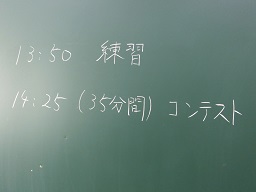 13:50 練習
14:25 (35分間) コンテスト